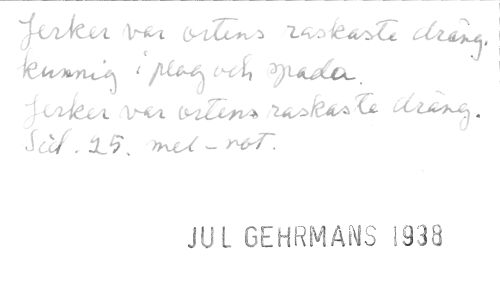 Jerker var ortens raskaste dräng.
kunnig i plog och spada.
Jerker var ortens raskaste dräng.
Sid. 25. mel-not.
JUL GEHRMANS 1938